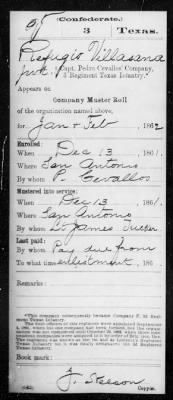 (Confederate.)
3 Texas.
Refugio Villasana
Pvt., Capt. Pedro Cevallos' Company,
3 Regiment Texas Infantry.*
Appears on
Company Muster Roll
of the organization named above,
for Jan & Feb, 1862
Enrolled:
When Dec 13, 1861.
Where San Antonio
By whom P. Cevallos
Mustered into service:
When Dec 13, 1861.
Where San Antonio
By whom Lt. James Tucker
Last paid:
By whom Pay due from
To what time enlistment, 186
Remarks:
*This company subsequently became Company F, 3d Regiment Texas Infantry.
Book mark:
J. Stelson
Copyist.